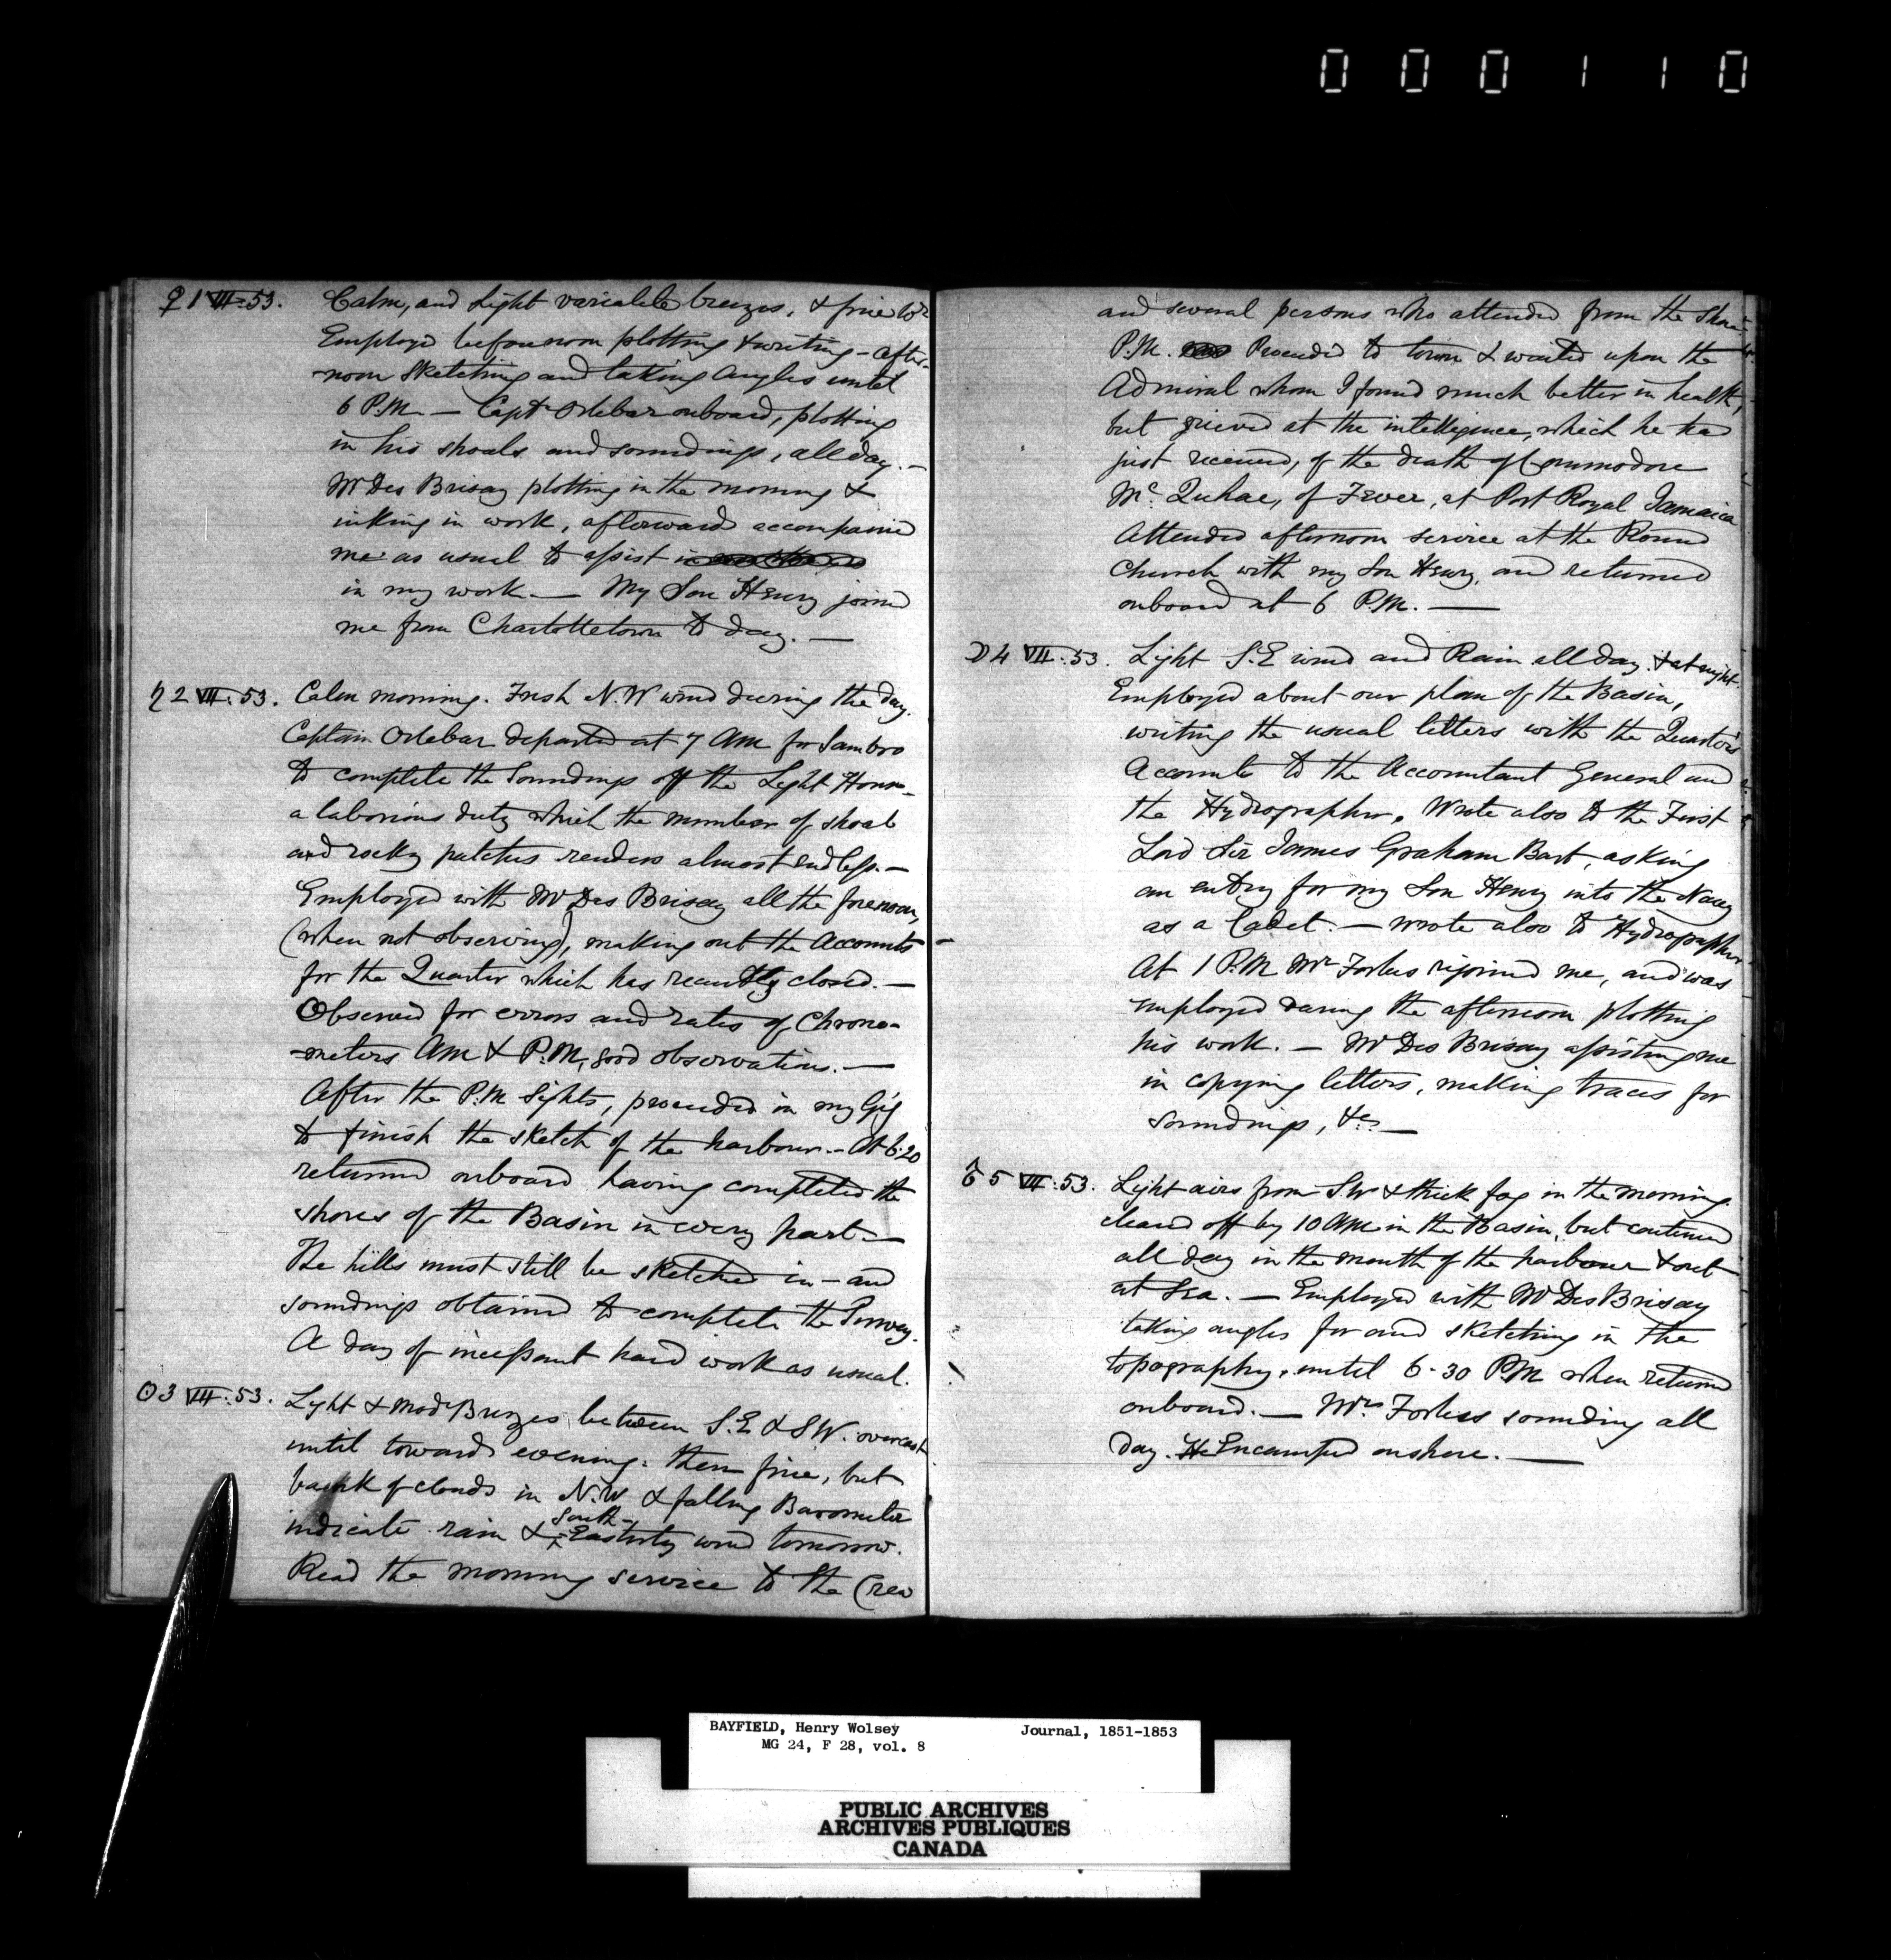 000110
♀ 1 VII. 53. Calm, and light variable breezes, & fine wr
Employed before noon plotting & writing - after-
noon sketching and taking angles until
6 P.M. — Captn Orlebar onboard, plotting
in his shoals and soundings, all day. —
Mr Des Brisay plotting in the morning &
inking in work, afterward accompanied
me as usual to assist in
in my work. — My Son Henry joined
me from Charlottetown to day. —
♄ 2 VII. 53. Calm morning. Fresh N.W wind during the day.
Captain Orlebar departed at 7 AM for Sambro
to complete the soundings off the Light House -
a laborious duty which the number of shoal
and rocky patches renders almost endless. —
Employed with Mr Des Brisay all the forenoon,
(when not observing), making out the Accounts
for the Quarter which has recently closed. —
Observed for errors and rates of Chrono-
-meters AM & P.M, good observations. —
After the P.M Sights, proceeded in my Gig
to finish the sketch of the harbour. - At 6.20
returned onboard having completed the
shores of the Basin in every part —
The hills must still be sketched in - and
soundings obtained to complete the Survey.
A day of incessant hard work as usual.
☉ 3 VII. 53. Light & Modr Breezes between S.E & SW. overcast
until towards evening: then fine, but
bank of clouds in N.W & falling Barometer
indicate rain & South-Easterly wind tomorrow.
Read the morning service to the Crew
and several persons who attended from the Shore.
P.M. Proceeded to town & waited upon the
Admiral whom I found much better in health,
but grieved at the intelligence, which he had
just received, of the death of Commodore
Mc Quhae, of Fever, at Port Royal Jamaica
Attended afternoon service at the Round
Church with my Son Henry, and returned
onboard at 6 P.M. —
☽ 4 VII. 53. Light S.E wind and Rain all day & at night.
Employed about our plan of the Basin,
writing the usual letters with the Quarter's
Accounts to the Accountant General and
the Hydrographer. Wrote also to the First
Lord Sir James Graham Bart, asking
an entry for my Son Henry into the Navy
as a Cadet. — Wrote also to Hydrographer
At 1 P.M Mr Forbes rejoined me, and was
employed during the afternoon plotting
his work. — Mr Des Brisay assisting me
in copying letters, making traces for
soundings, &c. —
♂ 5 VII. 53. Light airs from SW & thick fog in the morning
cleared off by 10 AM in the Basin, but continued
all day in the mouth of the harbour & out
at Sea. — Employed with Mr Des Brisay
taking angles for and sketching in the
topography, until 6.30 P.M when returned
onboard. — Mr Forbes sounding all
day. He Encamped onshore. —
BAYFIELD, Henry Wolsey Journal, 1851-1853
MG 24, F 28, vol. 8
PUBLIC ARCHIVES
ARCHIVES PUBLIQUES
CANADA